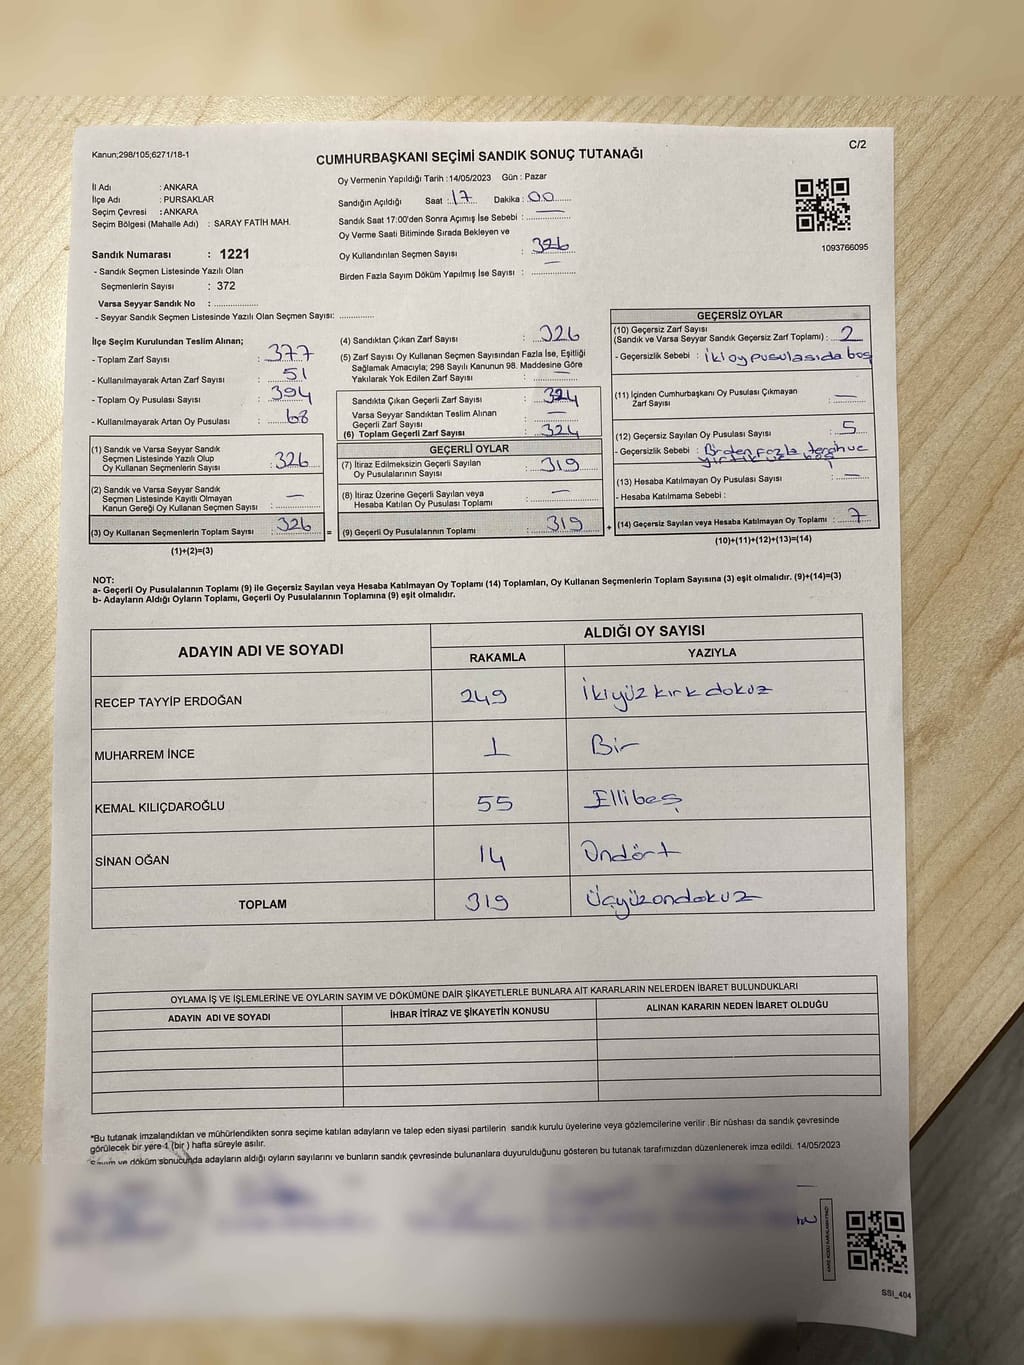 Kanun;298/105;6271/18-1
C/2
CUMHURBAŞKANI SEÇİMİ SANDIK SONUÇ TUTANAĞI
İl Adı : ANKARA
İlçe Adı : PURSAKLAR
Seçim Çevresi : ANKARA
Seçim Bölgesi (Mahalle Adı) : SARAY FATİH MAH.
Oy Vermenin Yapıldığı Tarih : 14/05/2023 Gün : Pazar
Sandığın Açıldığı Saat : 17 Dakika : 00
Sandık Saat 17:00'den Sonra Açımış İse Sebebi : —
Oy Verme Saati Bitiminde Sırada Bekleyen ve
Oy Kullandırılan Seçmen Sayısı : 326
Birden Fazla Sayım Döküm Yapılmış İse Sayısı : —
1093766095
Sandık Numarası : 1221
- Sandık Seçmen Listesinde Yazılı Olan
Seçmenlerin Sayısı : 372
Varsa Seyyar Sandık No : ....................
- Seyyar Sandık Seçmen Listesinde Yazılı Olan Seçmen Sayısı: ...............
İlçe Seçim Kurulundan Teslim Alınan;
- Toplam Zarf Sayısı : 377
- Kullanılmayarak Artan Zarf Sayısı : 51
- Toplam Oy Pusulası Sayısı : 394
- Kullanılmayarak Artan Oy Pusulası : 68
(1) Sandık ve Varsa Seyyar Sandık
Seçmen Listesinde Yazılı Olup
Oy Kullanan Seçmenlerin Sayısı : 326
(2) Sandık ve Varsa Seyyar Sandık
Seçmen Listesinde Kayıtlı Olmayan
Kanun Gereği Oy Kullanan Seçmen Sayısı : —
(3) Oy Kullanan Seçmenlerin Toplam Sayısı : 326
(1)+(2)=(3)
(4) Sandıktan Çıkan Zarf Sayısı : 326
(5) Zarf Sayısı Oy Kullanan Seçmen Sayısından Fazla İse, Eşitliği
Sağlamak Amacıyla; 298 Sayılı Kanunun 98. Maddesine Göre
Yakılarak Yok Edilen Zarf Sayısı : —
Sandıkta Çıkan Geçerli Zarf Sayısı : 324
Varsa Seyyar Sandıktan Teslim Alınan
Geçerli Zarf Sayısı : —
(6) Toplam Geçerli Zarf Sayısı : 324
GEÇERLİ OYLAR
(7) İtiraz Edilmeksizin Geçerli Sayılan
Oy Pusulalarının Sayısı : 319
(8) İtiraz Üzerine Geçerli Sayılan veya
Hesaba Katılan Oy Pusulası Toplamı : —
= (9) Geçerli Oy Pusulalarının Toplamı : 319
GEÇERSİZ OYLAR
(10) Geçersiz Zarf Sayısı
(Sandık ve Varsa Seyyar Sandık Geçersiz Zarf Toplamı) : 2
- Geçersizlik Sebebi : İki oy pusulasıda boş
(11) İçinden Cumhurbaşkanı Oy Pusulası Çıkmayan
Zarf Sayısı : —
(12) Geçersiz Sayılan Oy Pusulası Sayısı : 5
- Geçersizlik Sebebi : Birden fazla
(13) Hesaba Katılmayan Oy Pusulası Sayısı : —
- Hesaba Katılmama Sebebi :
+ (14) Geçersiz Sayılan veya Hesaba Katılmayan Oy Toplamı : 7
(10)+(11)+(12)+(13)=(14)
NOT:
a- Geçerli Oy Pusulalarının Toplamı (9) ile Geçersiz Sayılan veya Hesaba Katılmayan Oy Toplamı (14) Toplamları, Oy Kullanan Seçmenlerin Toplam Sayısına (3) eşit olmalıdır. (9)+(14)=(3)
b- Adayların Aldığı Oyların Toplamı, Geçerli Oy Pusulalarının Toplamına (9) eşit olmalıdır.
ADAYIN ADI VE SOYADI
ALDIĞI OY SAYISI
RAKAMLA YAZIYLA
RECEP TAYYİP ERDOĞAN 249 İkiyüz kırk dokuz
MUHARREM İNCE 1 Bir
KEMAL KILIÇDAROĞLU 55 Ellibeş
SİNAN OĞAN 14 Ondört
TOPLAM 319 Üçyüzondokuz
OYLAMA İŞ VE İŞLEMLERİNE VE OYLARIN SAYIM VE DÖKÜMÜNE DAİR ŞİKAYETLERLE BUNLARA AİT KARARLARIN NELERDEN İBARET BULUNDUKLARI
ADAYIN ADI VE SOYADI İHBAR İTİRAZ VE ŞİKAYETİN KONUSU ALINAN KARARIN NEDEN İBARET OLDUĞU
*Bu tutanak imzalandıktan ve mühürlendikten sonra seçime katılan adayların ve talep eden siyasi partilerin sandık kurulu üyelerine veya gözlemcilerine verilir. Bir nüshası da sandık çevresinde
görülecek bir yere 1 (bir) hafta süreyle asılır.
Sayım ve döküm sonucunda adayların aldığı oyların sayılarını ve bunların sandık çevresinde bulunanlara duyurulduğunu gösteren bu tutanak tarafımızdan düzenlenerek imza edildi. 14/05/2023
SSI_404